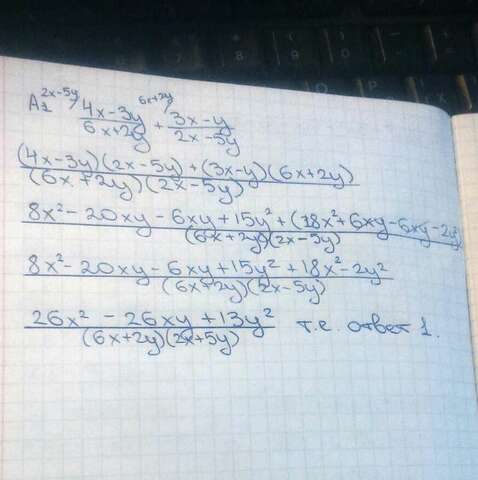 A1 2x-5y/ 4x-3y / 6x+2y + 6x+2y/ 3x-y / 2x-5y
(4x-3y)(2x-5y)+(3x-y)(6x+2y) / (6x+2y)(2x-5y)
8x²-20xy-6xy+15y²+(18x²+6xy-6xy-2y / (6x+2y)(2x-5y)
8x²-20xy-6xy+15y²+18x²-2y² / (6x+2y)(2x-5y)
26x²-26xy+13y² / (6x+2y)(2x+5y) т.е. ответ 1.